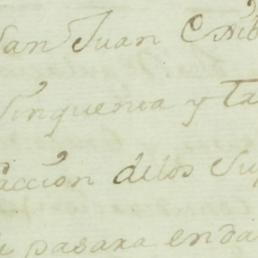 San Juan
Cinquenta y ta
acción delos Su
pasara enda